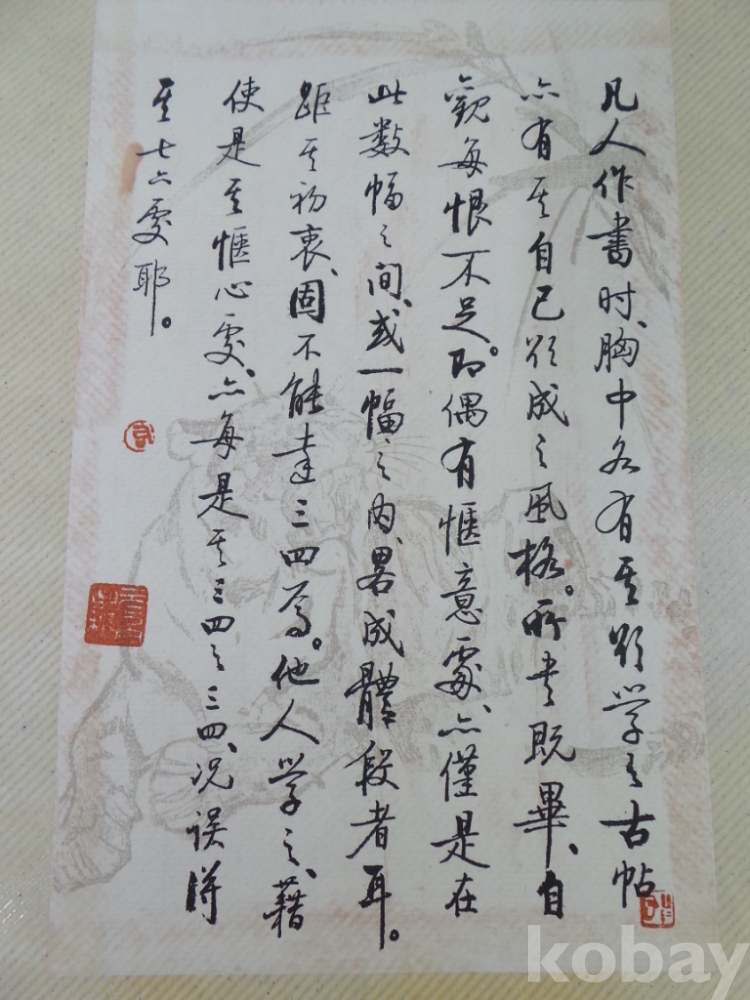 凡人作書时、胸中各有其欲学之古帖
亦有其自己欲成之风格。所书既畢、自
觀每恨不足。即偶有惬意處、亦僅是在
此数幅之间、或一幅之内、畧成體段者耳。
距其初衷、固不能達三四焉。他人学之、藉
使是其惬心處、亦每是其三四之三四、况误得
其七六處耶。
kobay